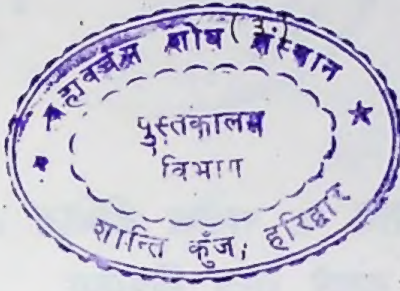 ब्रह्मवर्चस शोध संस्थान
(3)
पुस्तकालय
विभाग
शान्ति कुँज, हरिद्वार